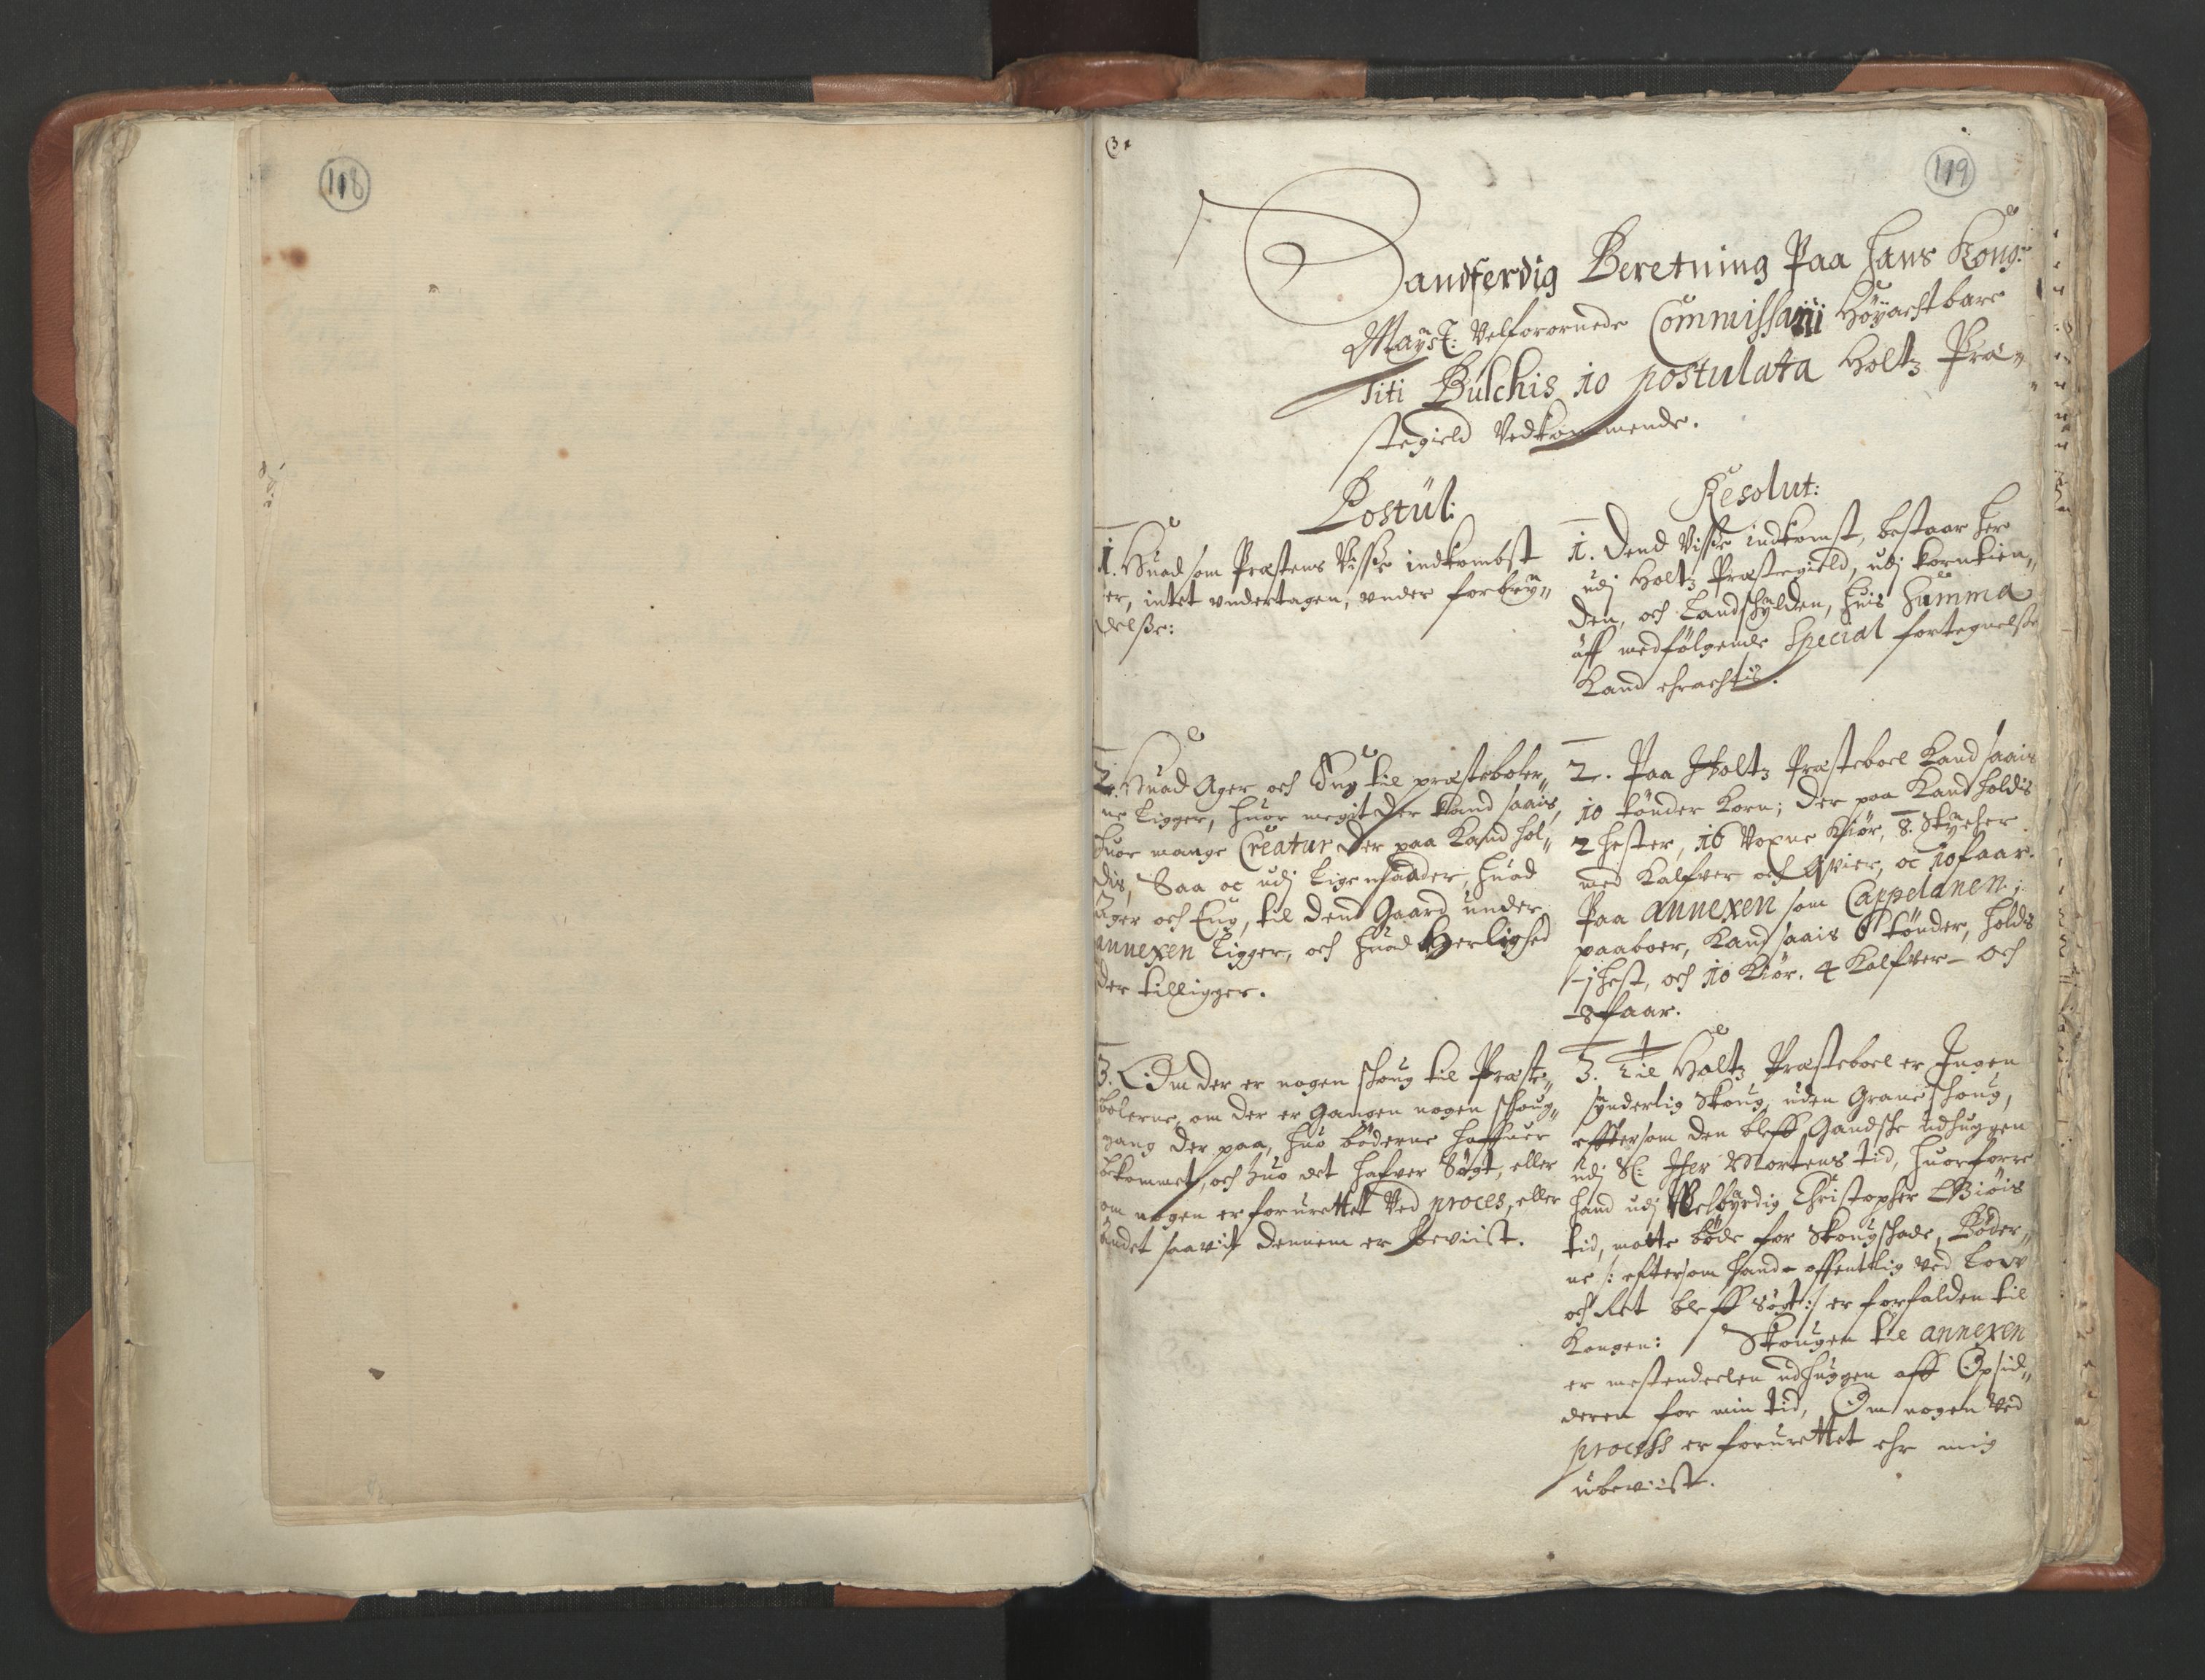 118
119
Sandferdig Beretning Paa Hans Kong:
Mayst: Velforornede Commissarii Höyachtbare
Titi Bulchis 10 postulata Holtz Præ„
stegield Vedkommende.
Postul:
1. Huad som Præstens Visse indkombst
er, intet undertagen, under forbry„
delsse:
2. Huad Ager och Eng til præsteboler„
ne ligger, huor megit der kand saais,
huor mange Creatur der paa kand hol„
dis, Saa oc udj ligemaader, huad
Ager och Eng, til dend Gaard under
annexen ligger, och huad Herlighed
der tilligger.
3. Om der er nogen schoug til Præste„
bolerne, om der er Gangen nogen schoug„
gang der paa, huo böderne haffuer
bekommet, och huo det hafver Sögt, eller
om nogen er forurettet Ved proces, eller
andet saavit dennem er beviist.
Resolut:
1. Dend Visse indkomst, bestaar her
udj Holtz Præstegield, udj korntien„
den, och Landschylden, huis Summa
aff medfölgende Special fortegnelsse
kand erachtis.
2. Paa Holtz Præsteboel kand saais
10 tönder korn; der paa kand holdis
2 hester, 16 Voxne kiör, 8. Stycher
med kalfver och qvier, oc 10 faar.
Paa annexen som Cappelanen
paaboer, kand saais 6 tönder, holdis
1 hest, och 10 kiör. 4 kalfver och
8 faar.
3. Til Holtz Præsteboel er Ingen
synderlig Skoug, uden Graneschoug,
efftersom den bleff Gandsche udhuggen
udj Sl: Her Mortens tid, huorforre
hand udj Velbyrdig Christopher Giöis
tid, matte böde for Skougschade, Böder„
ne /: eftersom hand offentlig ved Low
och Ret bleff Sögt :/ er forfalden til
kongen: Skougen til annexen
er mestendeelen udhuggen aff Opsid„
deren for min tid, Om nogen Ved
process er forurettet ehr mig
ubeviist.